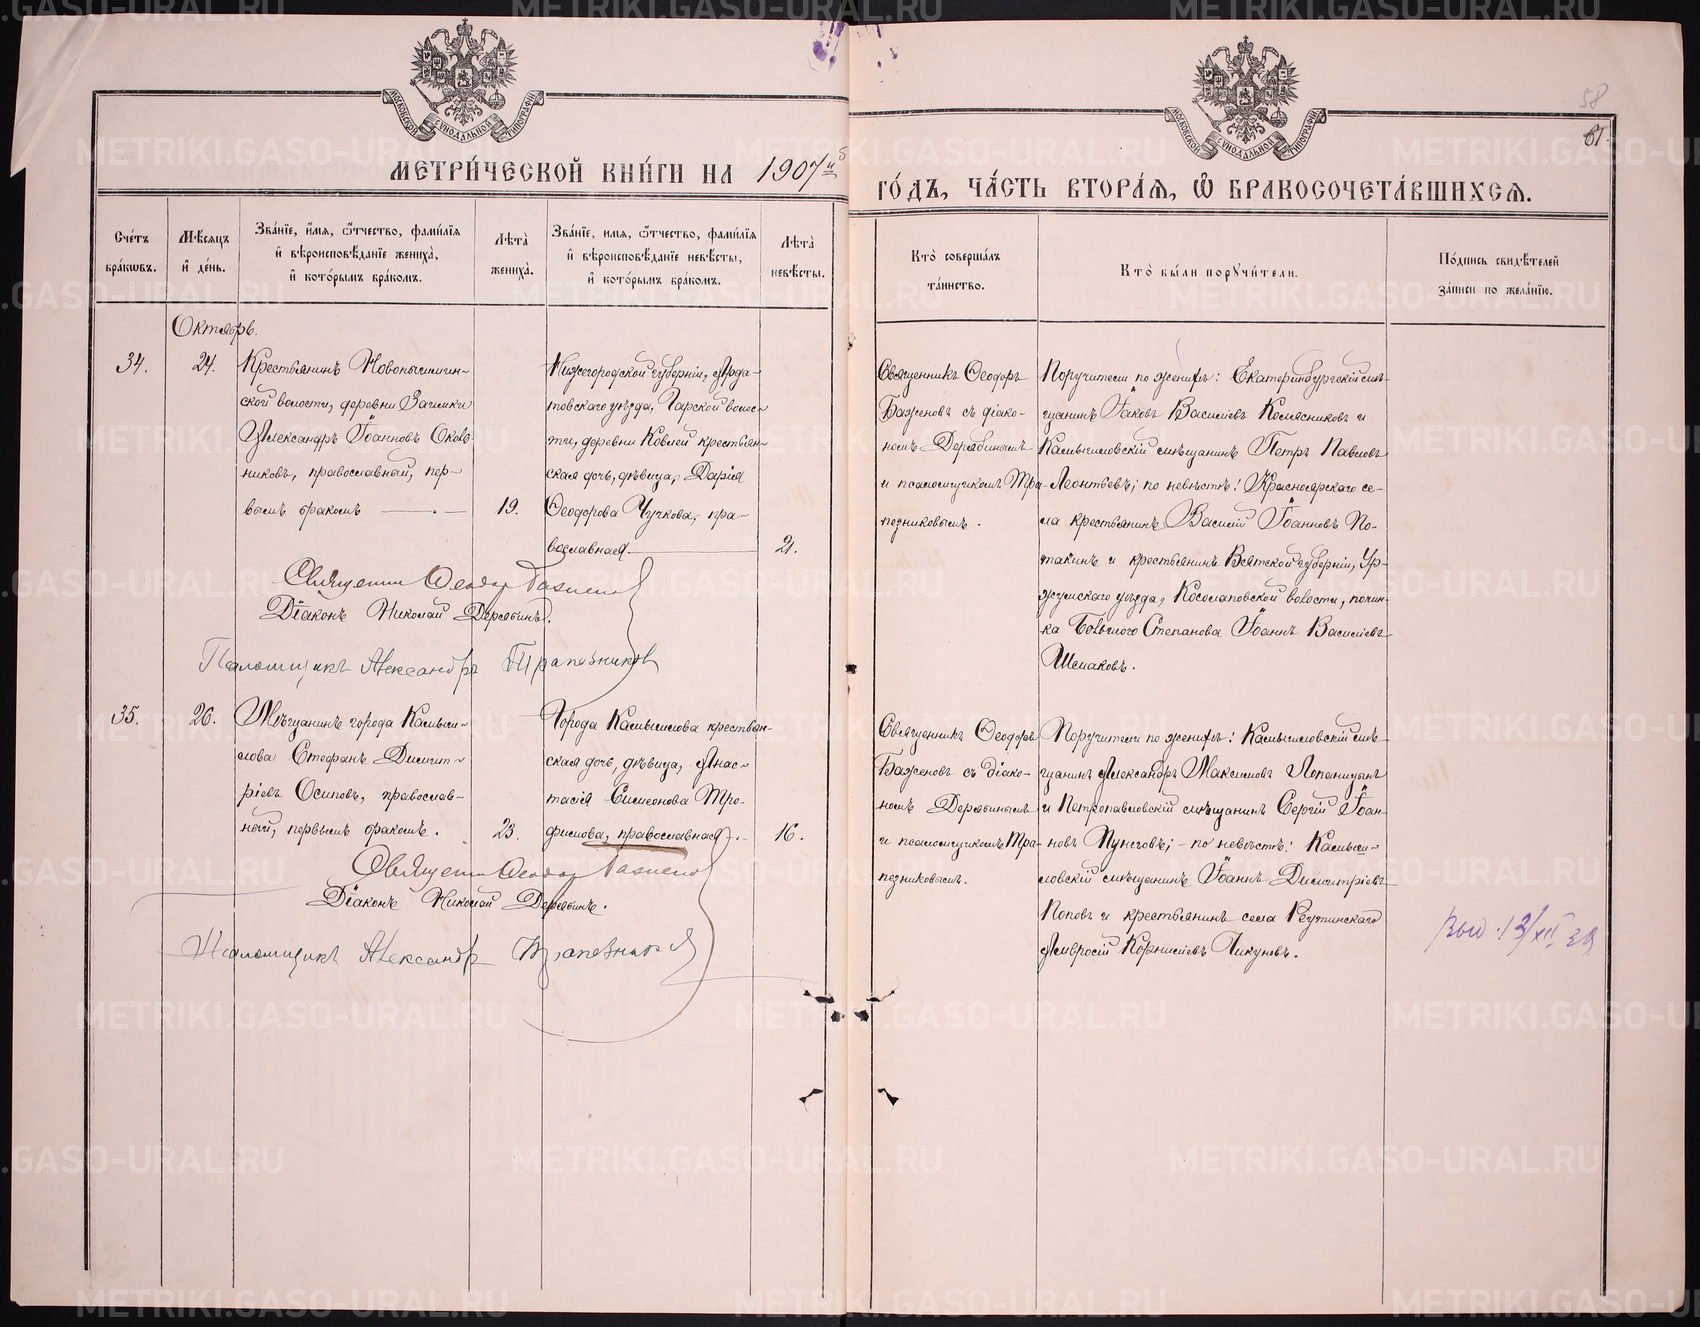 МОСКОВСКОЙ СѴНОДАЛЬНОЙ ТИПОГРАФІИ
МОСКОВСКОЙ СѴНОДАЛЬНОЙ ТИПОГРАФІИ
58
61.
МЕТРИ́ЧЕСКОЙ КНИ́ГИ НА 1907й
ГО́ДЪ, ЧА́СТЬ ВТОРА́Ѧ, Ѽ БРАКОСОЧЕТА́ВШИХСѦ.
Сче́тъ бра́кѡвъ.
Мѣ́сѧцъ и҆ де́нь.
Зва́нїе, и҆́мѧ, ѻ҆́тчество, фами́лїѧ и҆ вѣроисповѣ́данїе жениха̀, и҆ кото́рымъ бра́комъ.
Лѣ́та̀ жениха̀.
Зва́нїе, имѧ, ѻ҆́тчество, фами́лїѧ и҆ вѣроисповѣ́данїе невѣ́сты, и҆ кото́рымъ бра́комъ.
Лѣ́та̀ невѣ́сты.
Кто̀ соверша́лъ та́инство.
Кто̀ бы́ли пору́чи́тели.
По́дпись свидѣ́телей за́писи по жела́нїю.
Октябрь.
34.
24.
Крестьянинъ Новопышмин-
ской волости, деревни Заимки
Александръ Іоанновъ Оково
никовъ, православный, пер-
вымъ бракомъ
19.
Нижегородской губерніи, Арда-
товскаго уѣзда, Гарской волос-
ти, деревни Ковлей крестьян-
ская дочь, дѣвица, Дарія
Ѳеодорова Чучкова, пра-
вославная
21.
Священникъ Ѳеодоръ
Баженовъ съ діако-
номъ Дерябинымъ
и псаломщикомъ Тра-
пезниковымъ.
Поручители по женихѣ: Екатеринбургскій мѣ-
щанинъ Іаковъ Васильевъ Колясниковъ и
Камышловскій мѣщанинъ Петръ Павловъ
Леонтьевъ; по невѣстѣ: Красноярскаго се-
ла крестьянинъ Василій Іоанновъ По-
такинъ и крестьянинъ Вятской губерніи, Ур-
жумскаго уѣзда, Косолаповской волости, почин-
ка Большого Степанова Іоаннъ Васильевъ
Шемаковъ.
Священникъ Ѳеодоръ Баженовъ
Діаконъ Николай Дерябинъ.
Псаломщикъ Александръ Трапезниковъ
35.
26.
Мѣщанинъ города Камыш-
лова Стефанъ Димит-
ріевъ Осиповъ, православ-
ный, первымъ бракомъ.
23.
Города Камышлова крестьян-
ская дочь, дѣвица, Анас-
тасія Симеонова Тро-
фимова, православная.
16.
Священникъ Ѳеодоръ
Баженовъ съ діако-
номъ Дерябинымъ
и псаломщикомъ Тра-
пезниковымъ.
Поручители по женихѣ: Камышловскій мѣ-
щанинъ Александръ Максимовъ Лопаницынъ
и Петропавловскій мѣщанинъ Сергій Іоан-
новъ Пунеговъ; - по невѣстѣ: Камыш-
ловскій мѣщанинъ Іоаннъ Димитріевъ
Поповъ и крестьянинъ села Реутинскаго
Амвросій Корниліевъ Пикуновъ.
Священникъ Ѳеодоръ Баженовъ
Діаконъ Николай Дерябинъ.
Псаломщикъ Александръ Трапезниковъ